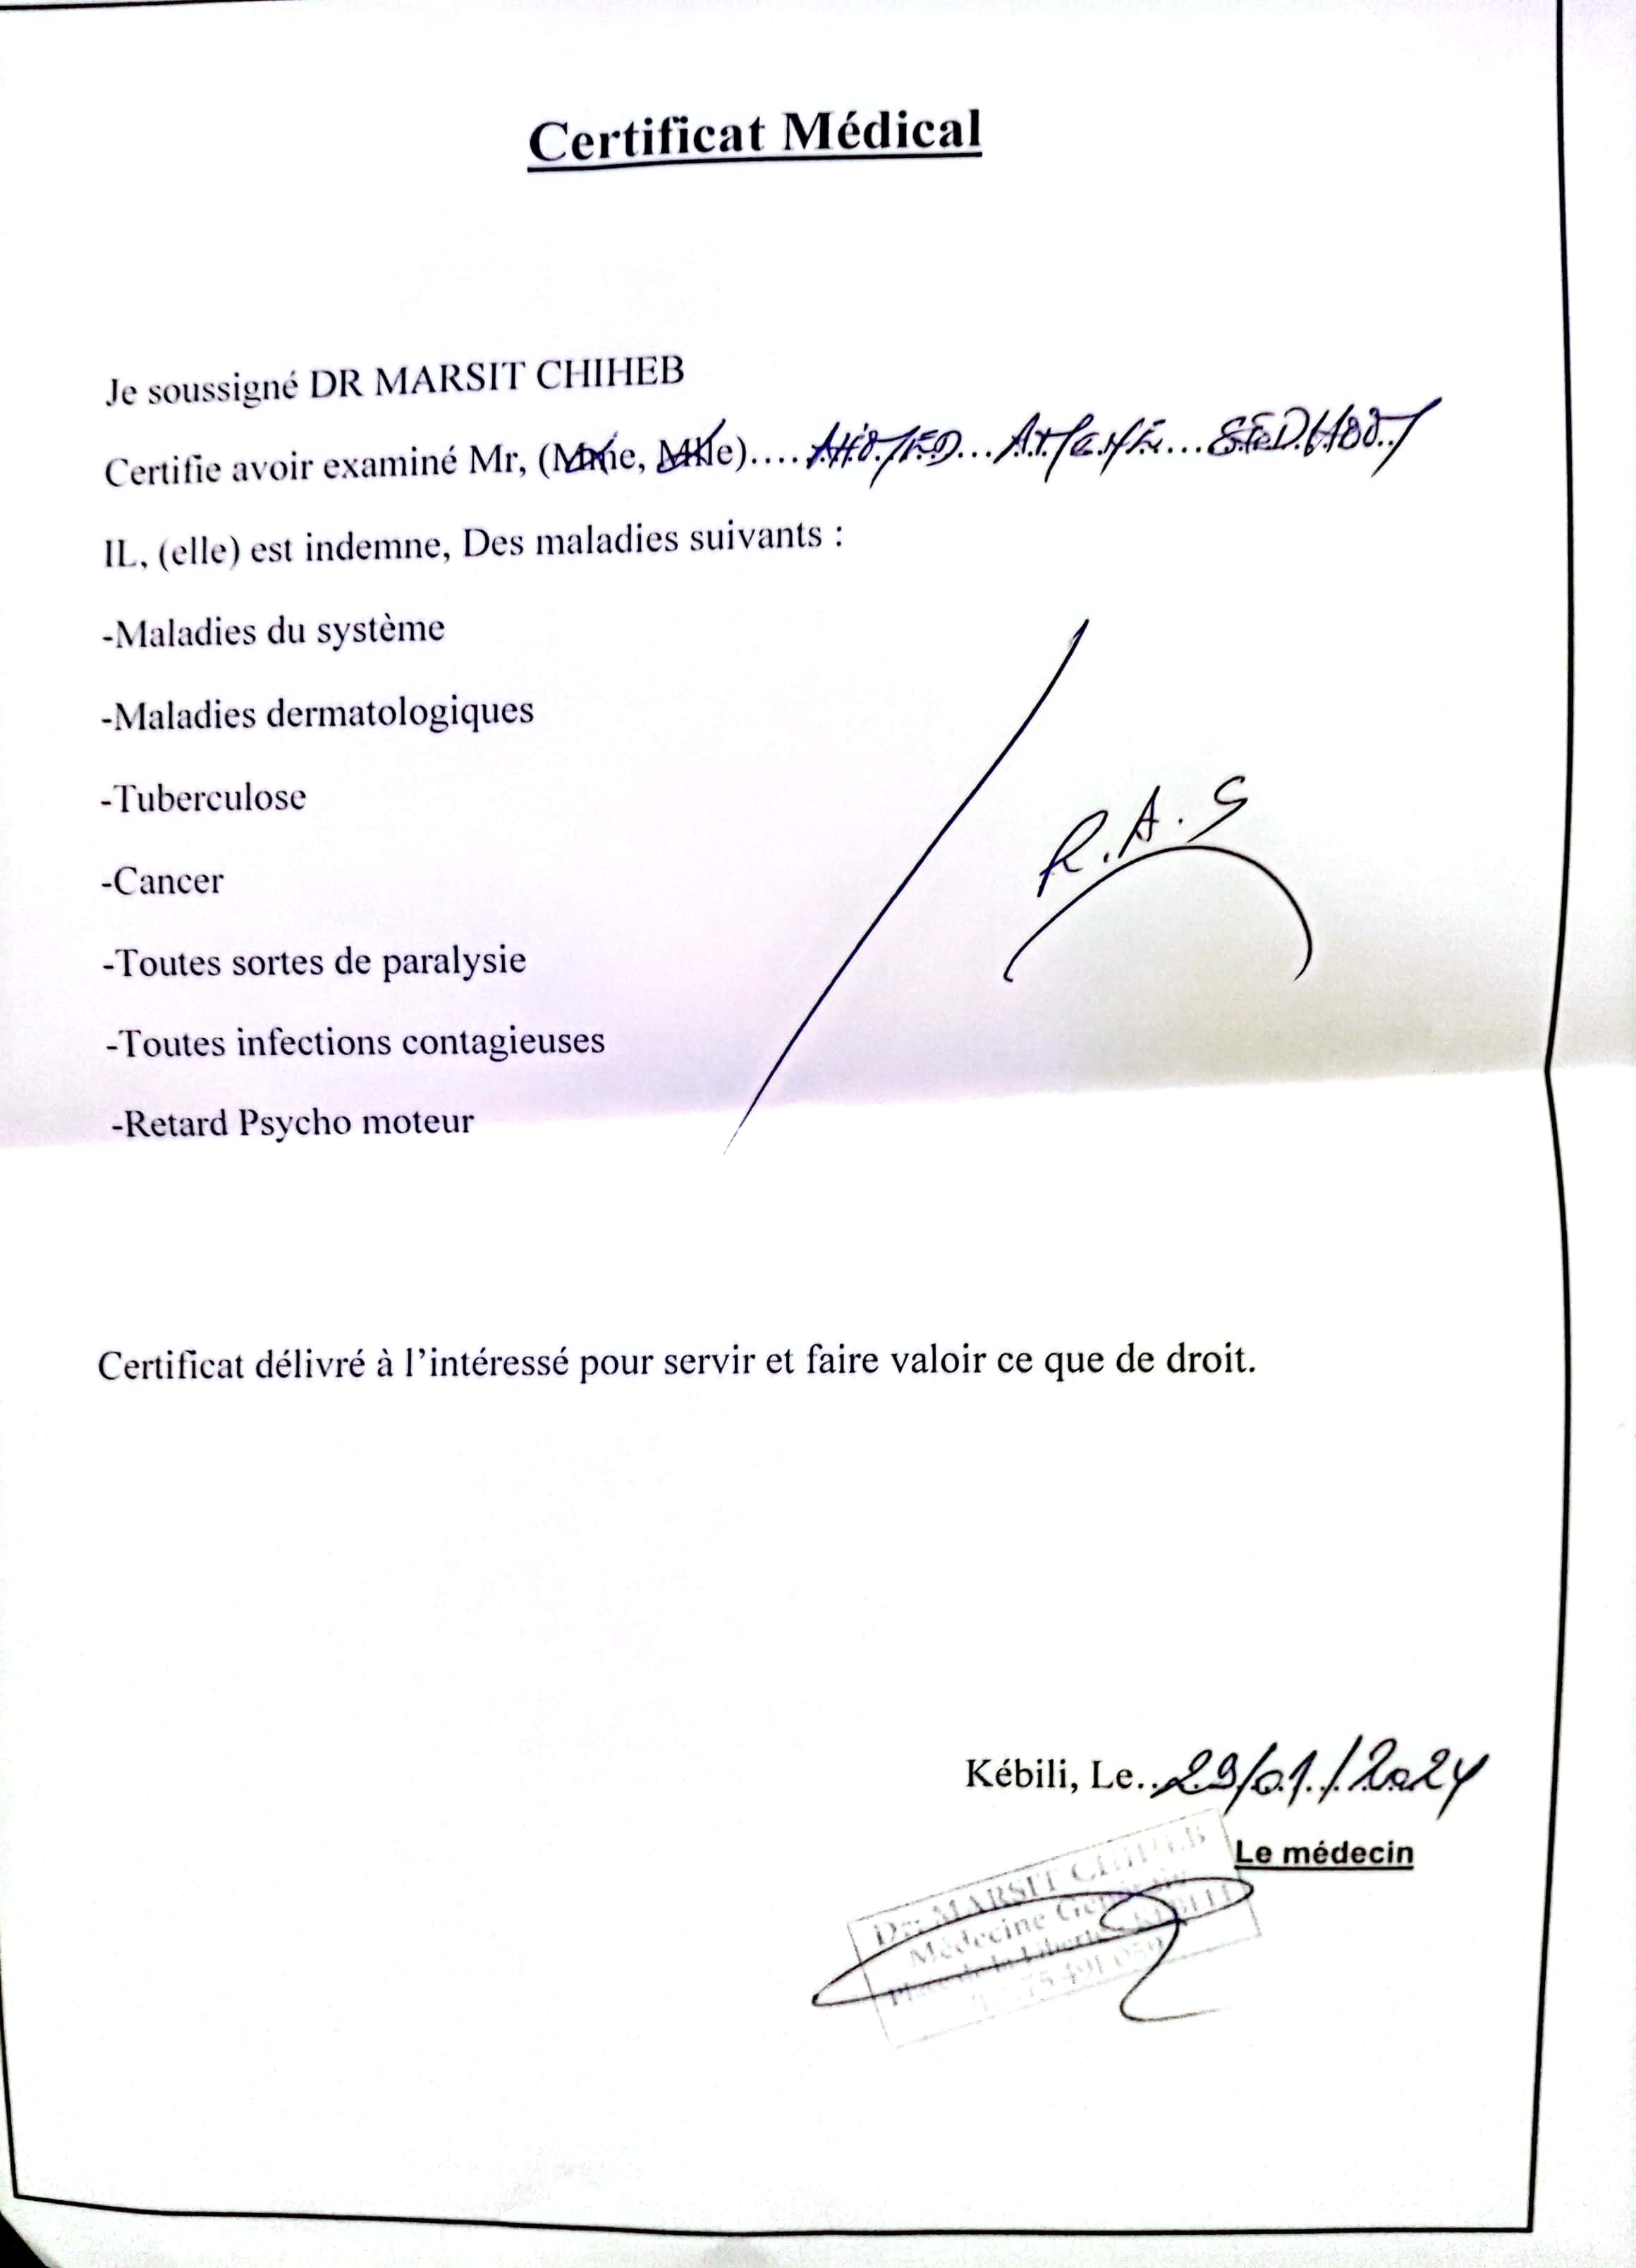 Certificat Médical
Je soussigné DR MARSIT CHIHEB
Certifie avoir examiné Mr, (Mme, Mlle)....
IL, (elle) est indemne, Des maladies suivants :
-Maladies du système
-Maladies dermatologiques
R.A.S
-Tuberculose
-Cancer
-Toutes sortes de paralysie
-Toutes infections contagieuses
-Retard Psycho moteur
Certificat délivré à l'intéressé pour servir et faire valoir ce que de droit.
Kébili, Le..29/01/2024
Le médecin
Dr. MARSIT CHIHEB
Médecine Générale
Place de la Liberté - KEBILI
75 491 059